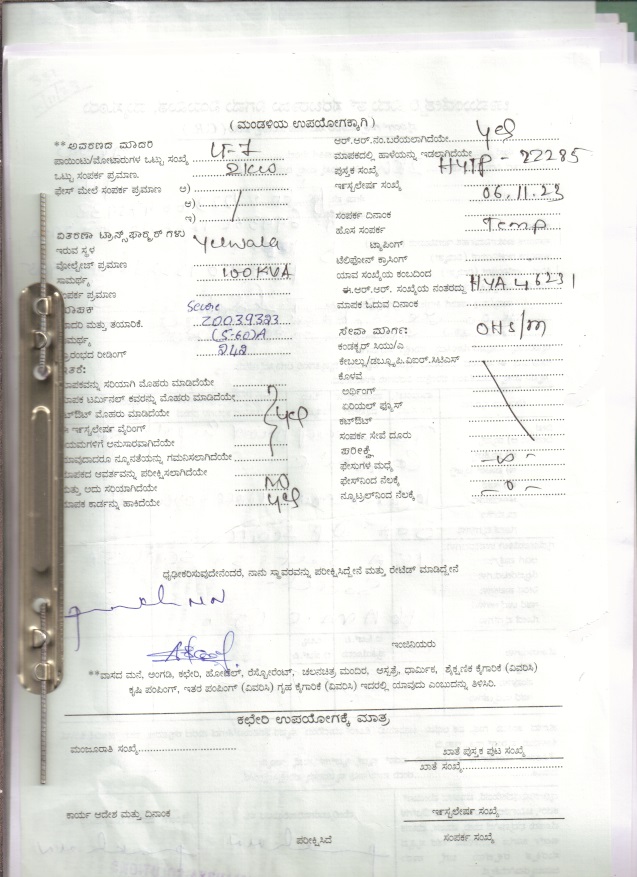 ( ಮಂಡಳಿಯ ಉಪಯೋಗಕ್ಕಾಗಿ )
**ಅವಕರಣದ ಮಾದರಿ LT-7
ಪಾಯಿಂಟು/ಮೋಟಾರುಗಳ ಒಟ್ಟು ಸಂಖ್ಯೆ
ಒಟ್ಟು ಸಂಪರ್ಕ ಪ್ರಮಾಣ. 2KW
ಫೇಸ್ ಮೇಲೆ ಸಂಪರ್ಕ ಪ್ರಮಾಣ ಅ)
ಆ)
ಇ)
ವಿತರಣಾ ಟ್ರಾನ್ಸ್‌ಫಾರ್ಮರ್ ಗಳು
ಇರುವ ಸ್ಥಳ Yelwala
ವೋಲ್ಟೇಜ್ ಪ್ರಮಾಣ
ಸಾಮರ್ಥ್ಯ 100KVA
ಸಂಪರ್ಕ ಪ್ರಮಾಣ
ಮಾಪಕ
ಮಾದರಿ ಮತ್ತು ತಯಾರಿಕೆ. 20039323
ಸಾಮರ್ಥ್ಯ (5-60)A
ಪ್ರಾರಂಭದ ರೀಡಿಂಗ್ 242
ಮಾಪಕವನ್ನು ಸರಿಯಾಗಿ ಮೊಹರು ಮಾಡಿದೆಯೇ
ಮಾಪಕ ಟರ್ಮಿನಲ್ ಕವರನ್ನು ಮೊಹರು ಮಾಡಿದೆಯೇ
ಕಟ್‌ಔಟ್ ಮೊಹರು ಮಾಡಿದೆಯೇ yes
ಈ ಇನ್ಸ್ಟಲೇಷನ್ ವೈರಿಂಗ್
ನಿಯಮಗಳಿಗೆ ಅನುಸಾರವಾಗಿದೆಯೇ
ಯಾವುದಾದರೂ ನ್ಯೂನತೆಯನ್ನು ಗಮನಿಸಲಾಗಿದೆಯೇ
ಮಾಪಕದ ಆವರ್ತವನ್ನು ಪರೀಕ್ಷಿಸಲಾಗಿದೆಯೇ
ಮತ್ತು ಅದು ಸರಿಯಾಗಿದೆಯೇ NO
ಮಾಪಕ ಕಾರ್ಡನ್ನು ಹಾಕಿದೆಯೇ yes
ಆರ್.ಆರ್.ನಂ.ಬರೆಯಲಾಗಿದೆಯೇ yes
ಮಾಪಕದಲ್ಲಿ ಹಾಳೆಯನ್ನು ಇಡಲಾಗಿದೆಯೇ
ಪುಸ್ತಕ ಸಂಖ್ಯೆ HYTP - 22285
ಇನ್ಸ್ಟಲೇಷನ್ ಸಂಖ್ಯೆ
06.11.23
ಸಂಪರ್ಕ ದಿನಾಂಕ
ಹೊಸ ಸಂಪರ್ಕ Temp
ಟ್ಯಾಪಿಂಗ್
ಟೆಲಿಫೋನ್ ಕ್ರಾಸಿಂಗ್
ಯಾವ ಸಂಖ್ಯೆಯ ಕಂಬದಿಂದ
ಈ.ಆರ್.ಆರ್. ಸಂಖ್ಯೆಯ ನಂತರದ್ದು HYA 46231
ಮಾಪಕ ಓದುವ ದಿನಾಂಕ
ಸೇವಾ ಮಾರ್ಗ: OHS/M
ಕಂಡಕ್ಟರ್ ಸಿಯು/ಎ
ಕೇಬಲ್ಲು/ಡಬ್ಲ್ಯೂಪಿ.ಐಆರ್.ಸಿಟಿಎಸ್
ಕೊಳವೆ
ಅರ್ಥಿಂಗ್
ಏರಿಯಲ್ ಫ್ಯೂಸ್
ಕಟ್‌ಔಟ್
ಸಂಪರ್ಕ ಸೇವೆ ದೂರು
ಪರೀಕ್ಷೆ
ಫೇಸುಗಳ ಮಧ್ಯೆ
ಫೇಸ್‌ನಿಂದ ನೆಲಕ್ಕೆ
ನ್ಯೂಟ್ರಲ್‌ನಿಂದ ನೆಲಕ್ಕೆ
ಧೃಢೀಕರಿಸುವುದೇನೆಂದರೆ, ನಾನು ಸ್ಥಾವರವನ್ನು ಪರೀಕ್ಷಿಸಿದ್ದೇನೆ ಮತ್ತು ರೇಟೆಡ್ ಮಾಡಿದ್ದೇನೆ
ಇಂಜಿನಿಯರು
**ವಾಸದ ಮನೆ, ಅಂಗಡಿ, ಕಛೇರಿ, ಹೋಟೆಲ್, ರೆಸ್ಟೋರೆಂಟ್, ಚಲನಚಿತ್ರ ಮಂದಿರ, ಆಸ್ಪತ್ರೆ, ಧಾರ್ಮಿಕ, ಶೈಕ್ಷಣಿಕ ಕೈಗಾರಿಕೆ (ವಿವರಿಸಿ)
ಕೃಷಿ ಪಂಪಿಂಗ್, ಇತರ ಪಂಪಿಂಗ್ (ವಿವರಿಸಿ) ಗೃಹ ಕೈಗಾರಿಕೆ (ವಿವರಿಸಿ) ಇದರಲ್ಲಿ ಯಾವುದು ಎಂಬುದನ್ನು ತಿಳಿಸಿರಿ.
ಕಛೇರಿ ಉಪಯೋಗಕ್ಕೆ ಮಾತ್ರ
ಮಂಜೂರಾತಿ ಸಂಖ್ಯೆ
ಖಾತೆ ಪುಸ್ತಕ ಪುಟ ಸಂಖ್ಯೆ
ಖಾತೆ ಸಂಖ್ಯೆ
ಕಾರ್ಯ ಆದೇಶ ಮತ್ತು ದಿನಾಂಕ
ಇನ್ಸ್ಟಲೇಷನ್ ಸಂಖ್ಯೆ
ಪರೀಕ್ಷಿಸಿದೆ
ಸಂಪರ್ಕ ಸಂಖ್ಯೆ